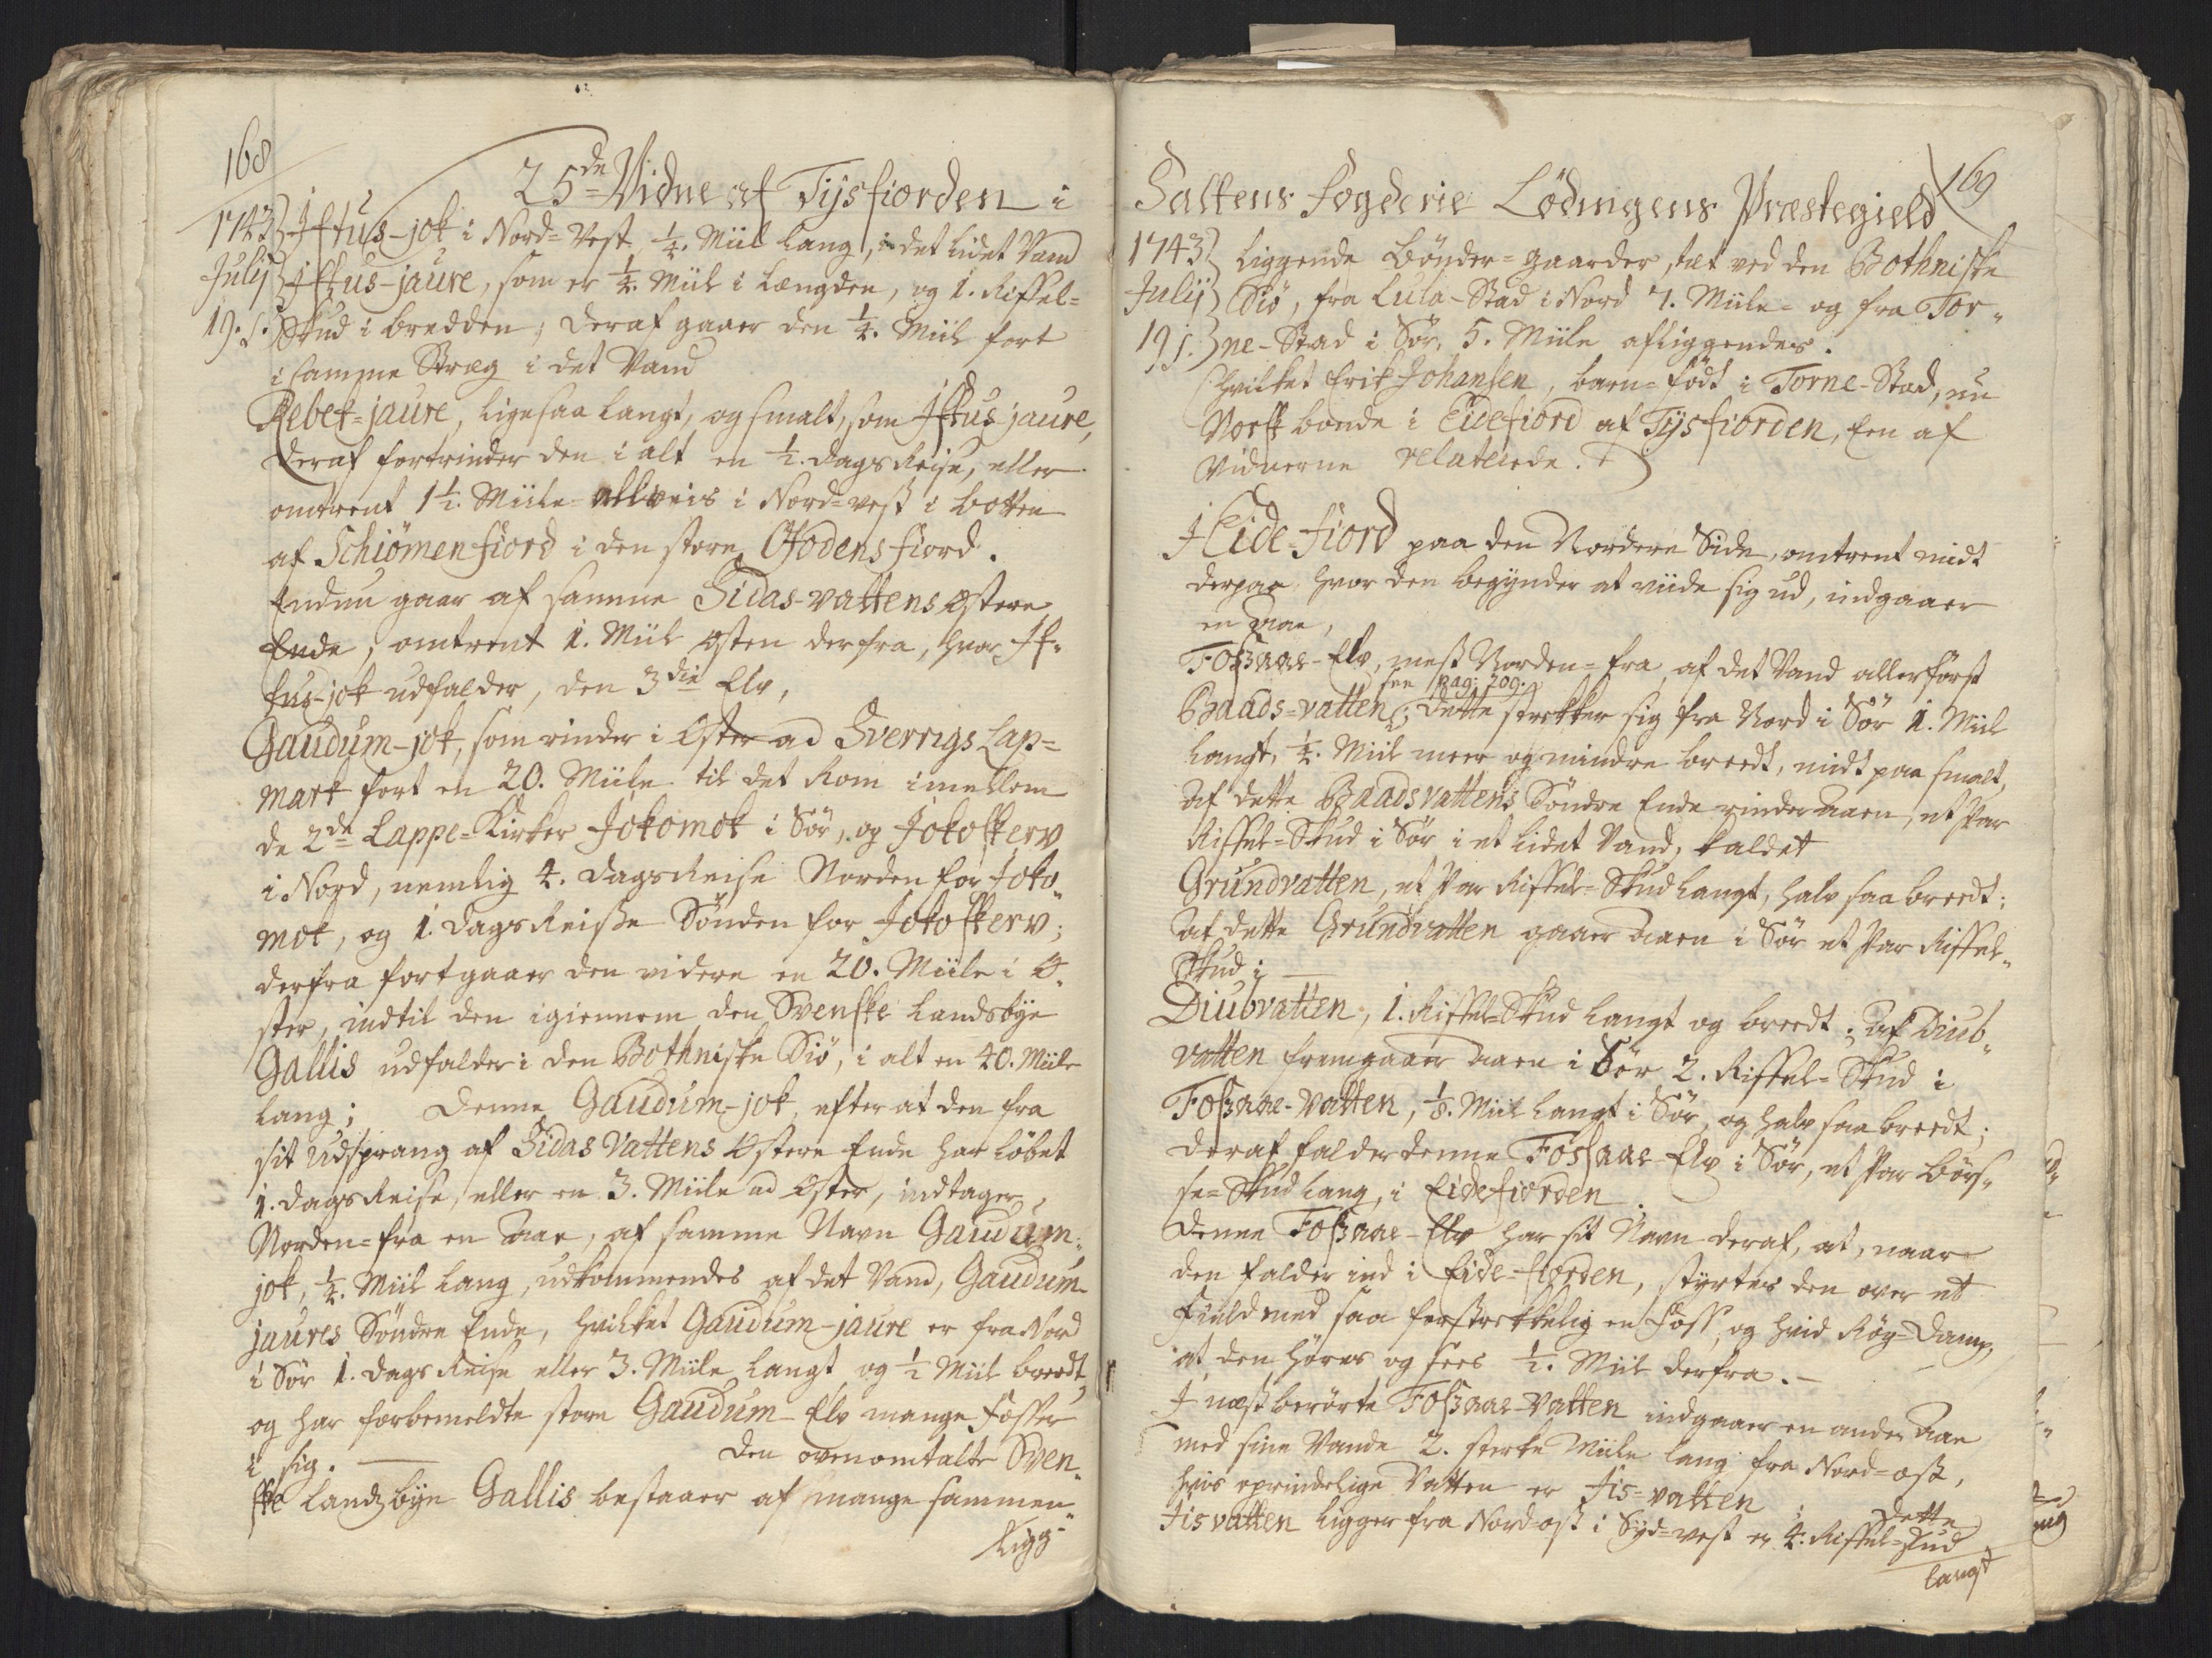 168
25de Vidne af Tijsfiorden i
1743 Iftus-jok i Nord-Vest, ¼. Miil lang, i det lidet Vand
Julij Iftus-jaure, som er ¼. Miil i Længden, og 1. Riffel-
19. s. Skud i bredden; deraf gaaer den ¼. Miil fort
i samme Stræg i det Vand
Rebek-jaure, ligesaa langt, og smalt, som Iftus-jaure,
deraf fortrinder den i alt en ½. dags Reise, eller
omtrent 1½. Miile alleveis i Nord-vest i botten
af Schiömenfiord i den store Ofodens fiord.
Endnu gaar af samme Sidas-vattens Østere
Ende, omtrent 1. Miil Østen derfra, hvor If-
tus-jok udfalder, den 3die Elv,
Gaudum-jok, som rinder i Øster ad Sverrigs Lap-
mark fort en 20. Miile til det Rom imellem
de 2de Lappe-Kirker Jokomok i Sør, og Jokoskerv
i Nord, nemlig 4. dags Reise Norden for Joko-
mok, og 1. dags Reise Sønden for Jokoskerv;
derfra fortgaaer den videre en 20. Miile i Ø-
ster, indtil den igiennem den Svenske Landsbye
Gallis udfalder i den Bothniske Siø, i alt en 40. Miile
lang; Denne Gaudum-jok, efter at den fra
sit Udsprang af Sidas Vattens Østere Ende har løbet
1. dags Reise, eller en 3. Miile ad Øster, indtager,
Norden-fra en Aae, af samme Navn Gaudum-
jok, ¼. Miil lang, udkommendes af det Vand, Gaudum-
jaures Søndre Ende, hvilket Gaudum-jaure er fra Nord
i Sør 1. dags Reise eller 3. Miile langt og ½ Miil breedt,
og har forbemeldte store Gaudum-Elv mange Fosser
i sig. Den ovenomtalte Sven-
ske Landsbye Gallis bestaaer af mange sammen-
ligg-
Saltens Fogderie Lødingens Præstegield 169
1743 liggende Bønder-gaarder, tæt ved den Bothniske
Julij Siø, fra Lula-Stad i Nord 7. Miile- og fra Tor-
19 s. ne-Stad i Sør, 5. Miile afliggendes.
Hvilket Erik Johansen, barn-født i Torne-Stad, nu
Norsk bonde i Eidefiord af Tysfiorden, Een af
Vidnerne relaterede.
I Eide-fiord paa den Nordere Side, omtrent midt
derpaa, hvor den begynder at viide sig ud, indgaaer
en Aae,
Fossaae-Elv, mest Norden-fra, af det Vand allerførst
see pag: 209.
Baads-vatten; dette strekker sig fra Nord i Sør 1. Miil
langt, ¼. Miil meer og mindre breedt, midt paa smalt,
Af dette Baadsvattens Søndre Ende rinder Aaen, et Par
Riffel-Skud i Sør i et lidet Vand, kaldet
Grundvatten, et Par Riffel-Skud langt, halv saa breedt;
Af dette Grundvatten gaaer Aaen i Sør et Par Riffel-
Skud i
Diubvatten, 1. Riffel-Skud langt og breedt; Af Diub-
vatten fremgaaer Aaen i Sør 2. Riffel-Skud i
Fossaae-Vatten, ⅛. Miil langt i Sør, og halv saa breedt;
deraf falder denne Fossaae-Elv i Sør, et Par Børs-
se-Skud lang, i Eidefiorden.
Denne Fossaae-Elv har sit Navn deraf, at, naar
den falder ind i Eide-fiorden, styrtes den over et
Field med saa forskrekkelig en Foss, og hvid Røg-Damp,
at den høres og sees ½. Miil derfra.
I næst berørte Fossaae-Vatten indgaaer en anden Aae
med sine Vande 2. sterke Miile lang fra Nord-ost,
hvis oprindelige Vatten er Iis-vatten; dette
Iisvatten ligger fra Nord-ost i Syd-vest er 4. Riffel-Skud
langt